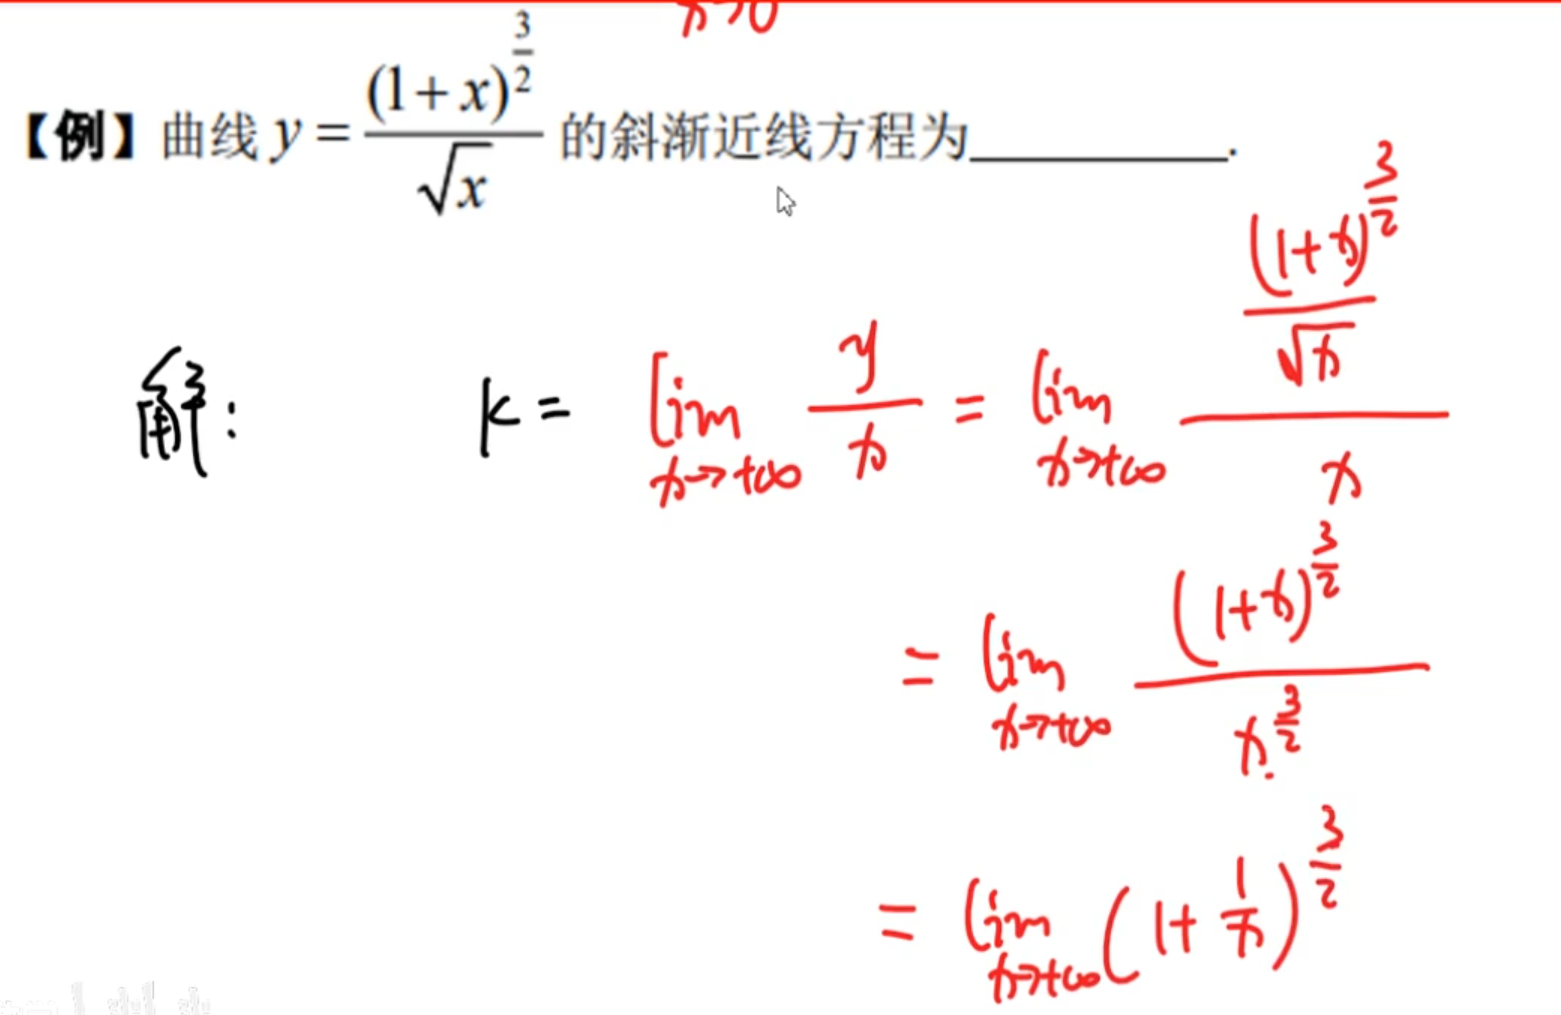 x→0
【例】曲线 y = (1+x)^{3/2} / √x 的斜渐近线方程为________.
解: k = lim_{x→+∞} y/x = lim_{x→+∞} ((1+x)^{3/2} / √x) / x
= lim_{x→+∞} (1+x)^{3/2} / x^{3/2}
= lim_{x→+∞} (1 + 1/x)^{3/2}